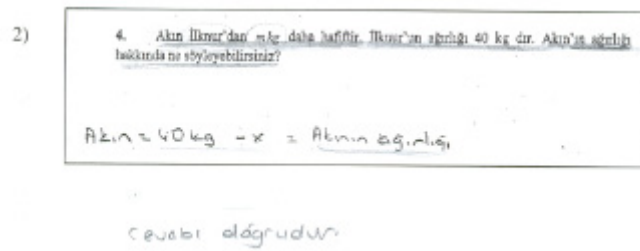 2)
4. Akın İlknur'dan m kg daha hafiftir. İlknur'un ağırlığı 40 kg dır. Akın'ın ağırlığı
hakkında ne söyleyebilirsiniz?
Akın = 40kg - x = Akının ağırlığı
cevabı doğrudur.